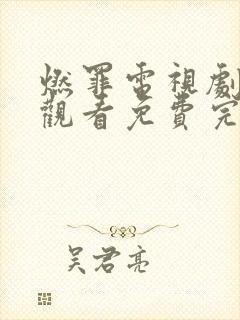 燃罪電視劇
觀看免費完
吴君亮